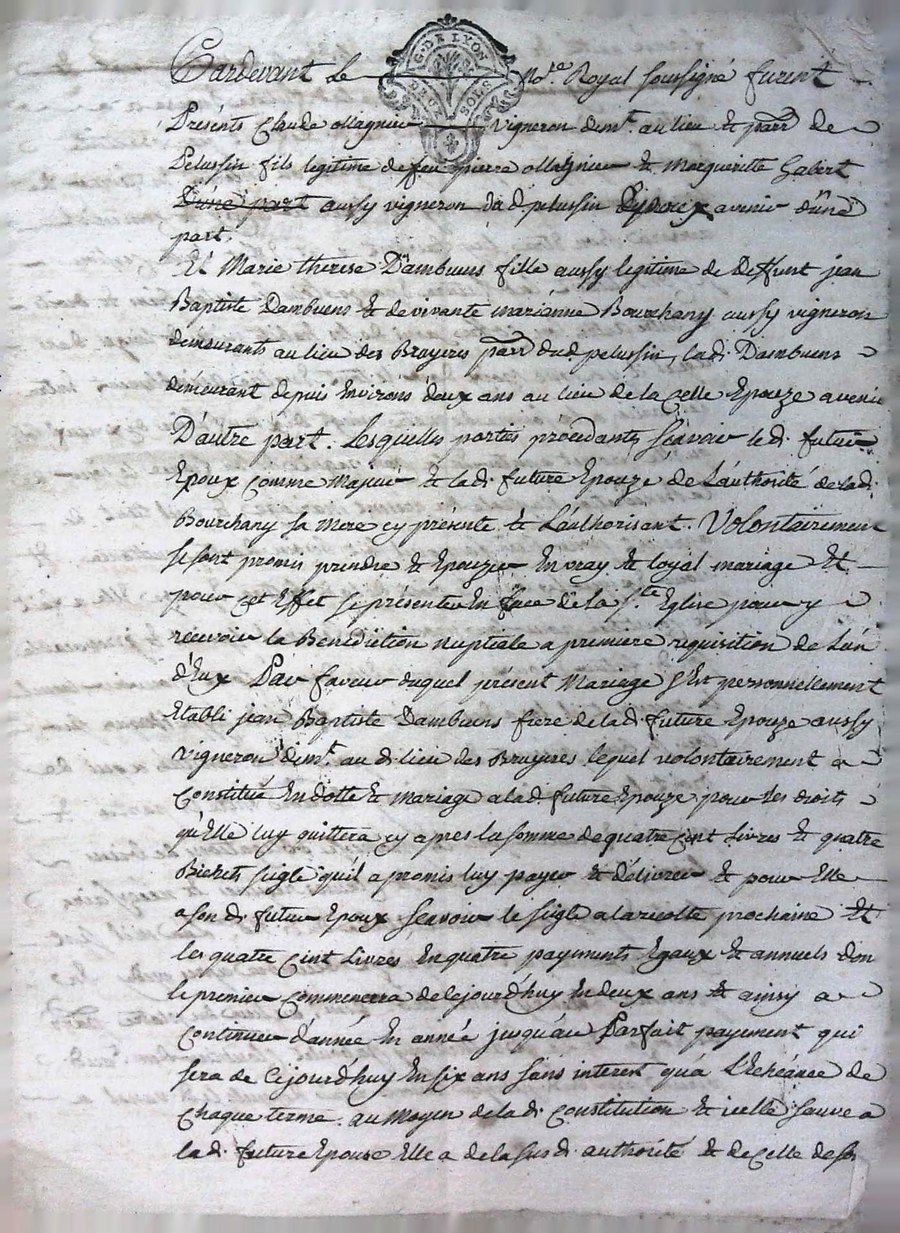 G. DE LYON
DEUX SOLS
Pardevant Le No.re Royal soussigné furent
Présents Claude ollagnier vigneron dem.t au lieu & parr de
Pelussin fils legitime de feu pierre ollagnier & Margueritte Gabert
D'une part aussy vigneron dud pelussin Epoux avenir d'une
part.
Et Marie therese Dambuens fille aussy legitime de deffunt jean
Baptiste Dambuens & de vivante marianne Bourchany aussy vigneron
demeurants au lieu des Bruyeres parr dud pelussin, lad. Dambuens
demeurant depuis Environs deux ans au lieu de la Celle Epouze avenir
D'autre part. Lesquelles parties procedants sçavoir led. futur
Epoux comme Majeur & lad. future Epouze de L'authorité de lad.
Bourchany sa Mere cy présente & L'authorisant. Volontairement
se sont promis prendre & Epouzer En vray & loyal mariage &
pour cet Effet se présenter En face de la S.te Eglise pour y
recevoir la Bénédiction Nuptiale a premiere requisition de L'un
d'Eux Par faveur duquel présent Mariage s'Est personnellement
Etabli jean Baptiste Dambuens frere de lad. future Epouze aussy
vigneron dem.t au d. lieu des Bruyeres lequel volontairement a
Constitué En dotte & mariage a lad. future Epouze pour les droits
qu'Elle luy quittera cy apres la somme de quatre cent Livres & quatre
Bichets seigle qu'il a promis luy payer & délivrer & pour Elle
a son d. futur Epoux sçavoir le seigle a la recolte prochaine &
les quatre Cent Livres En quatre payments Egaux & annuels don
le premier commencera de Cejourd'huy En deux ans & ainsy a
Continuer d'année En année jusqu'au Parfait payement qui
sera de Cejourd'huy En six ans sans interest qu'a L'Echéance de
Chaque terme. au Moyen de lad. Constitution & icelle sauve a
lad. future Epouse Elle a de la sus d. authorité & de Celle de son